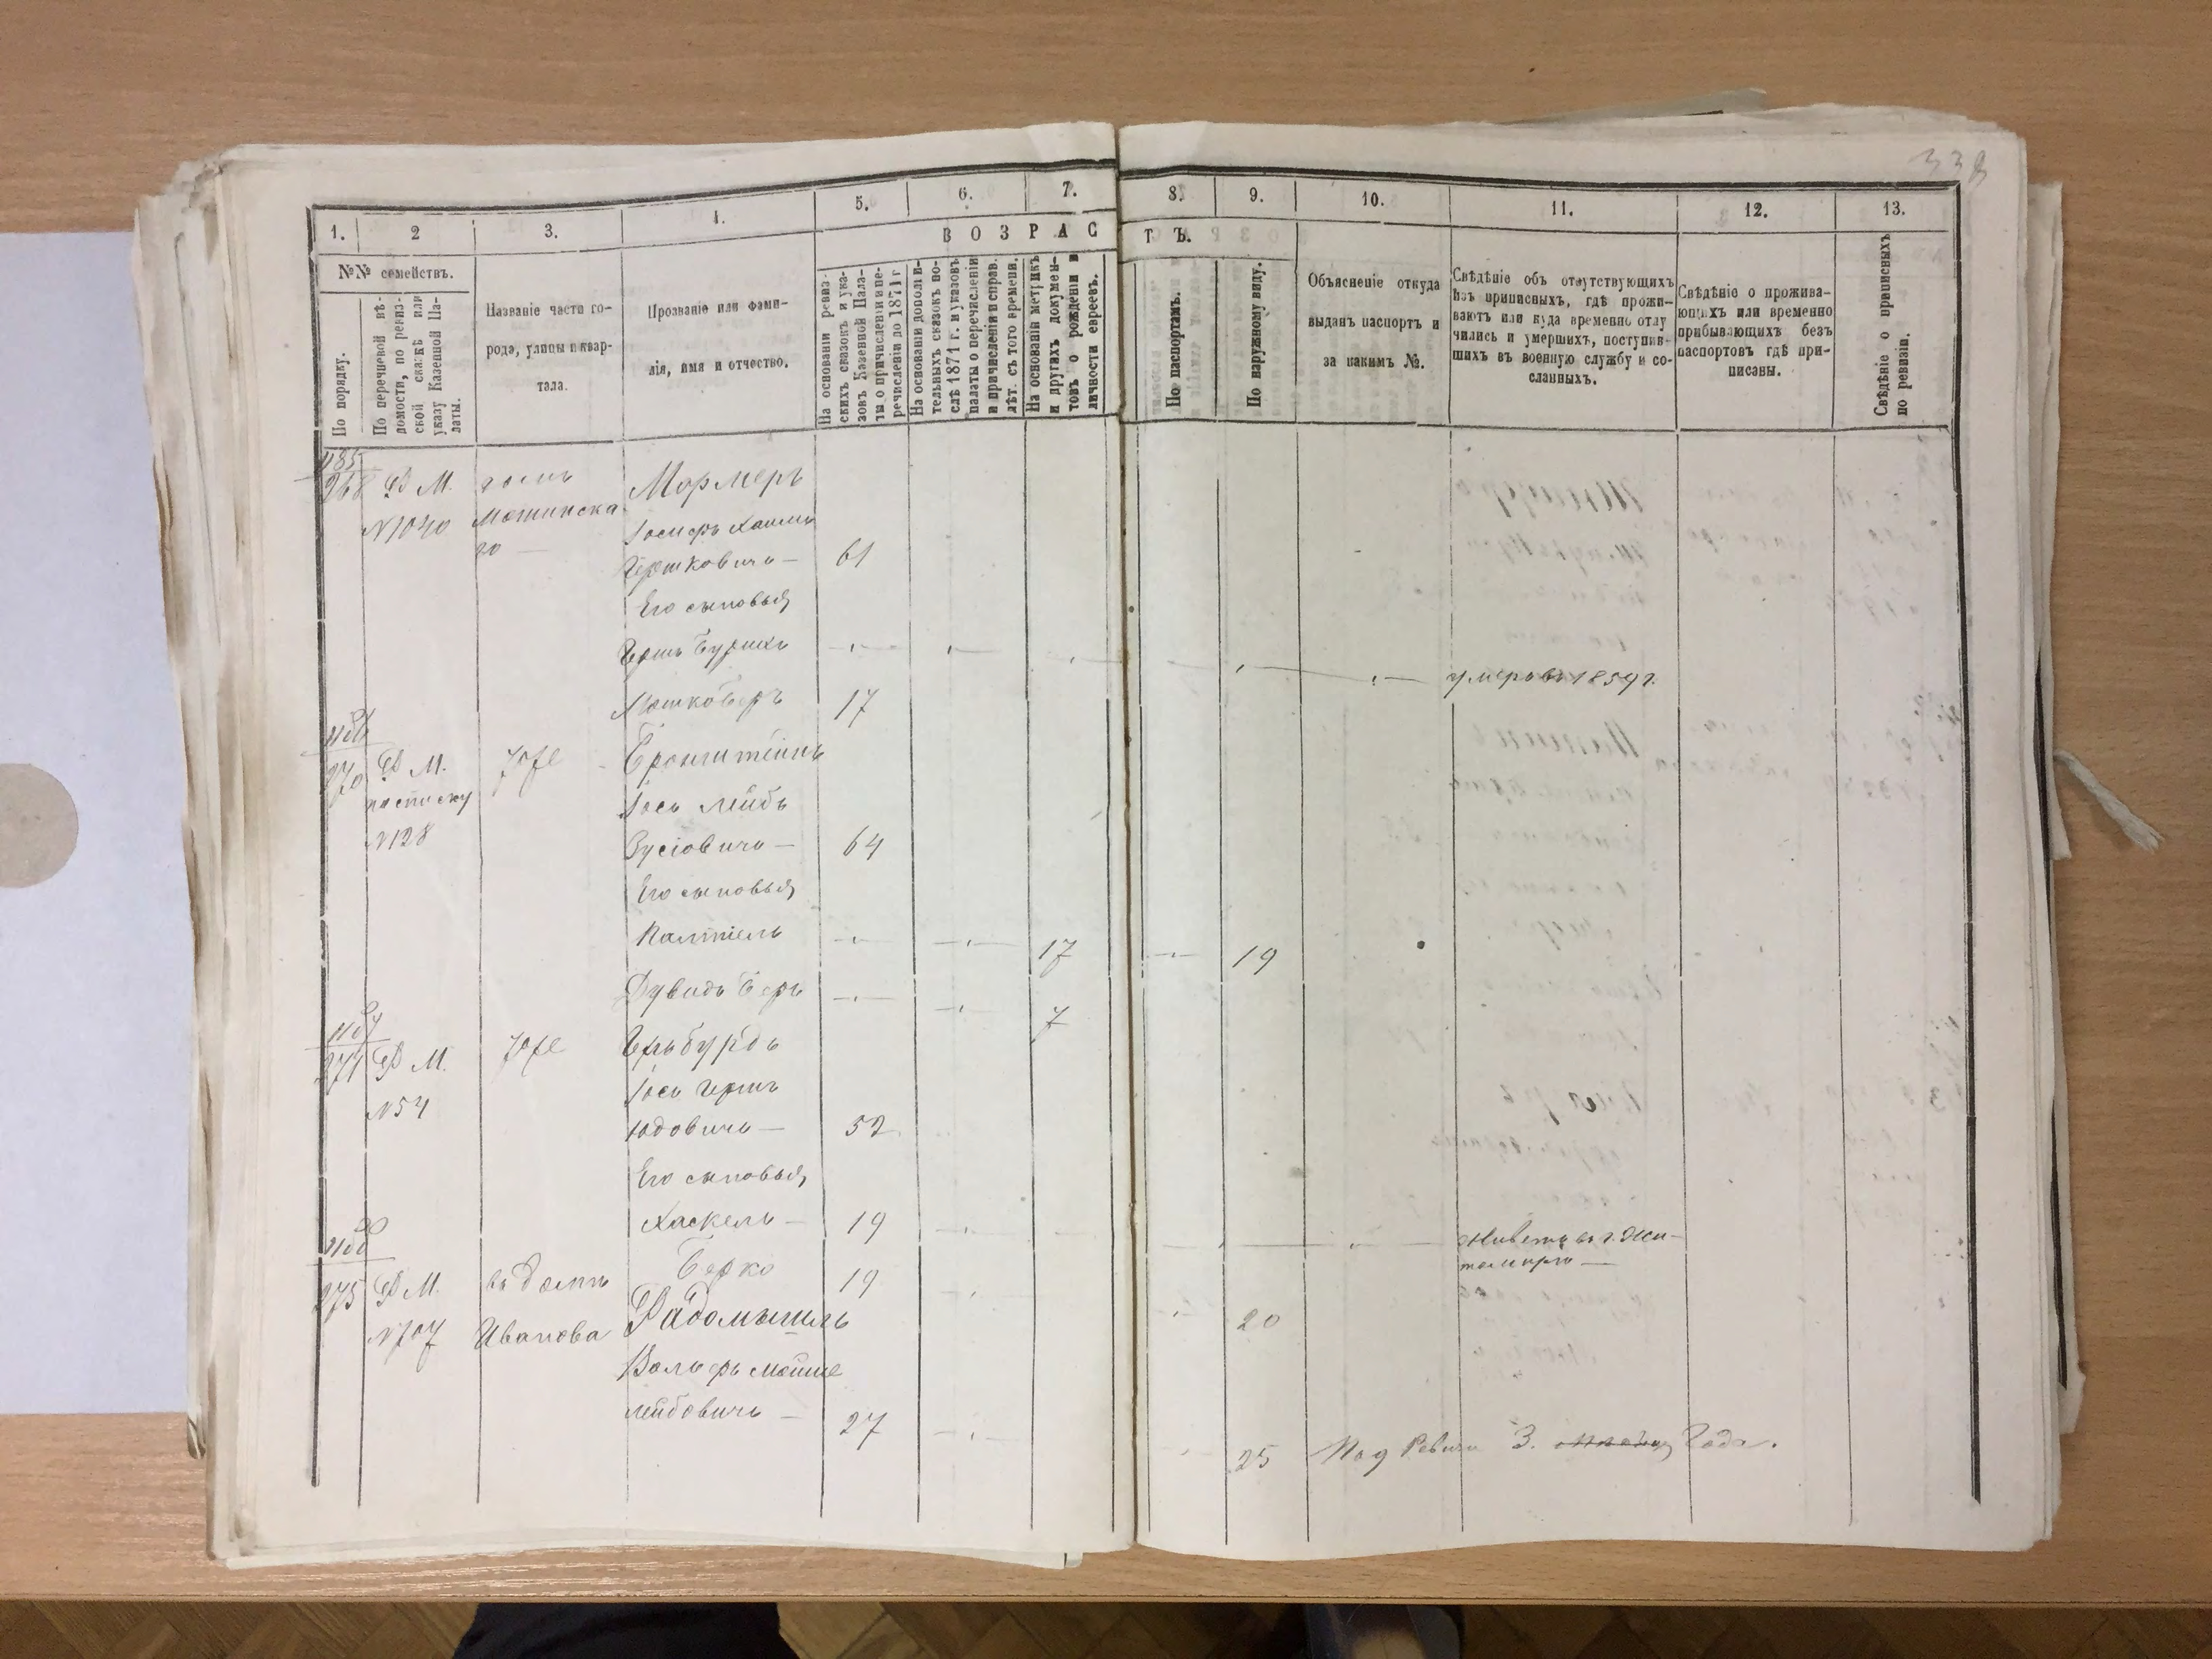 338
1.
2
3.
4.
5.
6.
7.
8.
9.
10.
11.
12.
13.
В О З Р А С Т Ъ.
№№ семействъ.
По порядку.
По перечневой вѣ-
домости, по ревиз-
ской сказкѣ или
указу Казенной Па-
латы.
Названіе части го-
рода, улицы и квар-
тала.
Прозваніе или фами-
лія, имя и отчество.
На основаніи ревиз-
скихъ сказокъ и ука-
зовъ Казенной Пала-
ты о причисленіи и пе-
речисленіи до 1871 г
На основаніи дополни-
тельныхъ сказокъ по-
слѣ 1871 г. и указовъ
палаты о перечисленіи
и причисленіи и справ.
лѣт. съ того времени.
На основаніи метрикъ
и другихъ докумен-
товъ о рожденіи и
личности евреевъ.
По паспортамъ.
По наружному виду.
Объясненіе откуда
выданъ паспортъ и
за какимъ №.
Свѣдѣніе объ отсутствующихъ
изъ приписныхъ, гдѣ прожи-
ваютъ или куда временно отлу
чились и умершихъ, поступив-
шихъ въ военную службу и со-
сланныхъ.
Свѣдѣніе о прожива-
ющихъ или временно
прибывающихъ безъ
паспортовъ гдѣ при-
писаны.
Свѣдѣніе о приписныхъ
по ревизіи.
1185
268 М. домъ Мормеръ
N 1040 Мошинска Іосифъ Хаимъ
го — Гершковичъ — 61
Его сыновья
Гершъ Бурихъ умеръ въ 1859 г.
Мошкоберъ 17
1186
270 М. тоже Бронштейнъ
по списку Іось Лейбъ
N 128 Зусіовичъ — 64
Его сыновья
Палтіель 17 19
Дувидъ Беръ 7
1187
271 М. тоже Гельбурдъ
N 54 Іось Гершъ
Юдовичъ — 52
Его сыновья
Хаскель — 19 Живетъ въ г. Жи-
томирѣ —
1188
Берко 19 20
275 М. въ домѣ Радомысль
N 707 Иванова Вольфъ Мойше
Лейбовичъ — 27 25 3. Года.